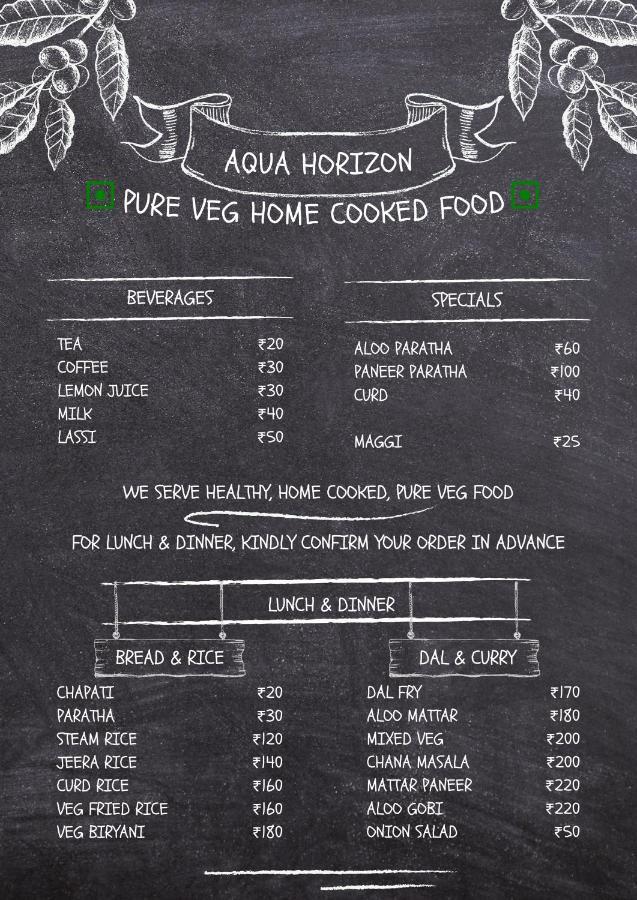 AQUA HORIZON
PURE VEG HOME COOKED FOOD
BEVERAGES
TEA ₹20
COFFEE ₹30
LEMON JUICE ₹30
MILK ₹40
LASSI ₹50
SPECIALS
ALOO PARATHA ₹60
PANEER PARATHA ₹100
CURD ₹40
MAGGI ₹25
WE SERVE HEALTHY, HOME COOKED, PURE VEG FOOD
FOR LUNCH & DINNER, KINDLY CONFIRM YOUR ORDER IN ADVANCE
LUNCH & DINNER
BREAD & RICE
CHAPATI ₹20
PARATHA ₹30
STEAM RICE ₹120
JEERA RICE ₹140
CURD RICE ₹160
VEG FRIED RICE ₹160
VEG BIRYANI ₹180
DAL & CURRY
DAL FRY ₹170
ALOO MATTAR ₹180
MIXED VEG ₹200
CHANA MASALA ₹200
MATTAR PANEER ₹220
ALOO GOBI ₹220
ONION SALAD ₹50